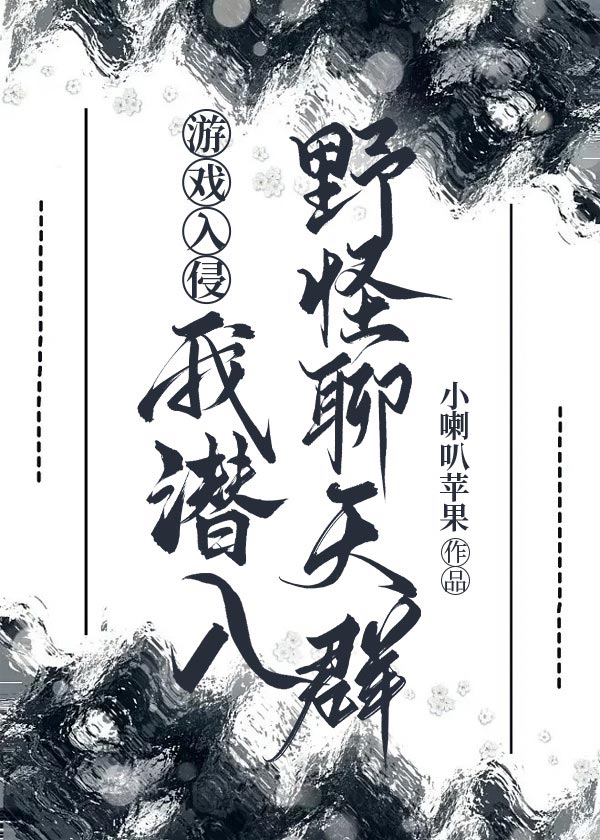 游戏入侵
我潜入
野怪聊天群
小喇叭苹果作品